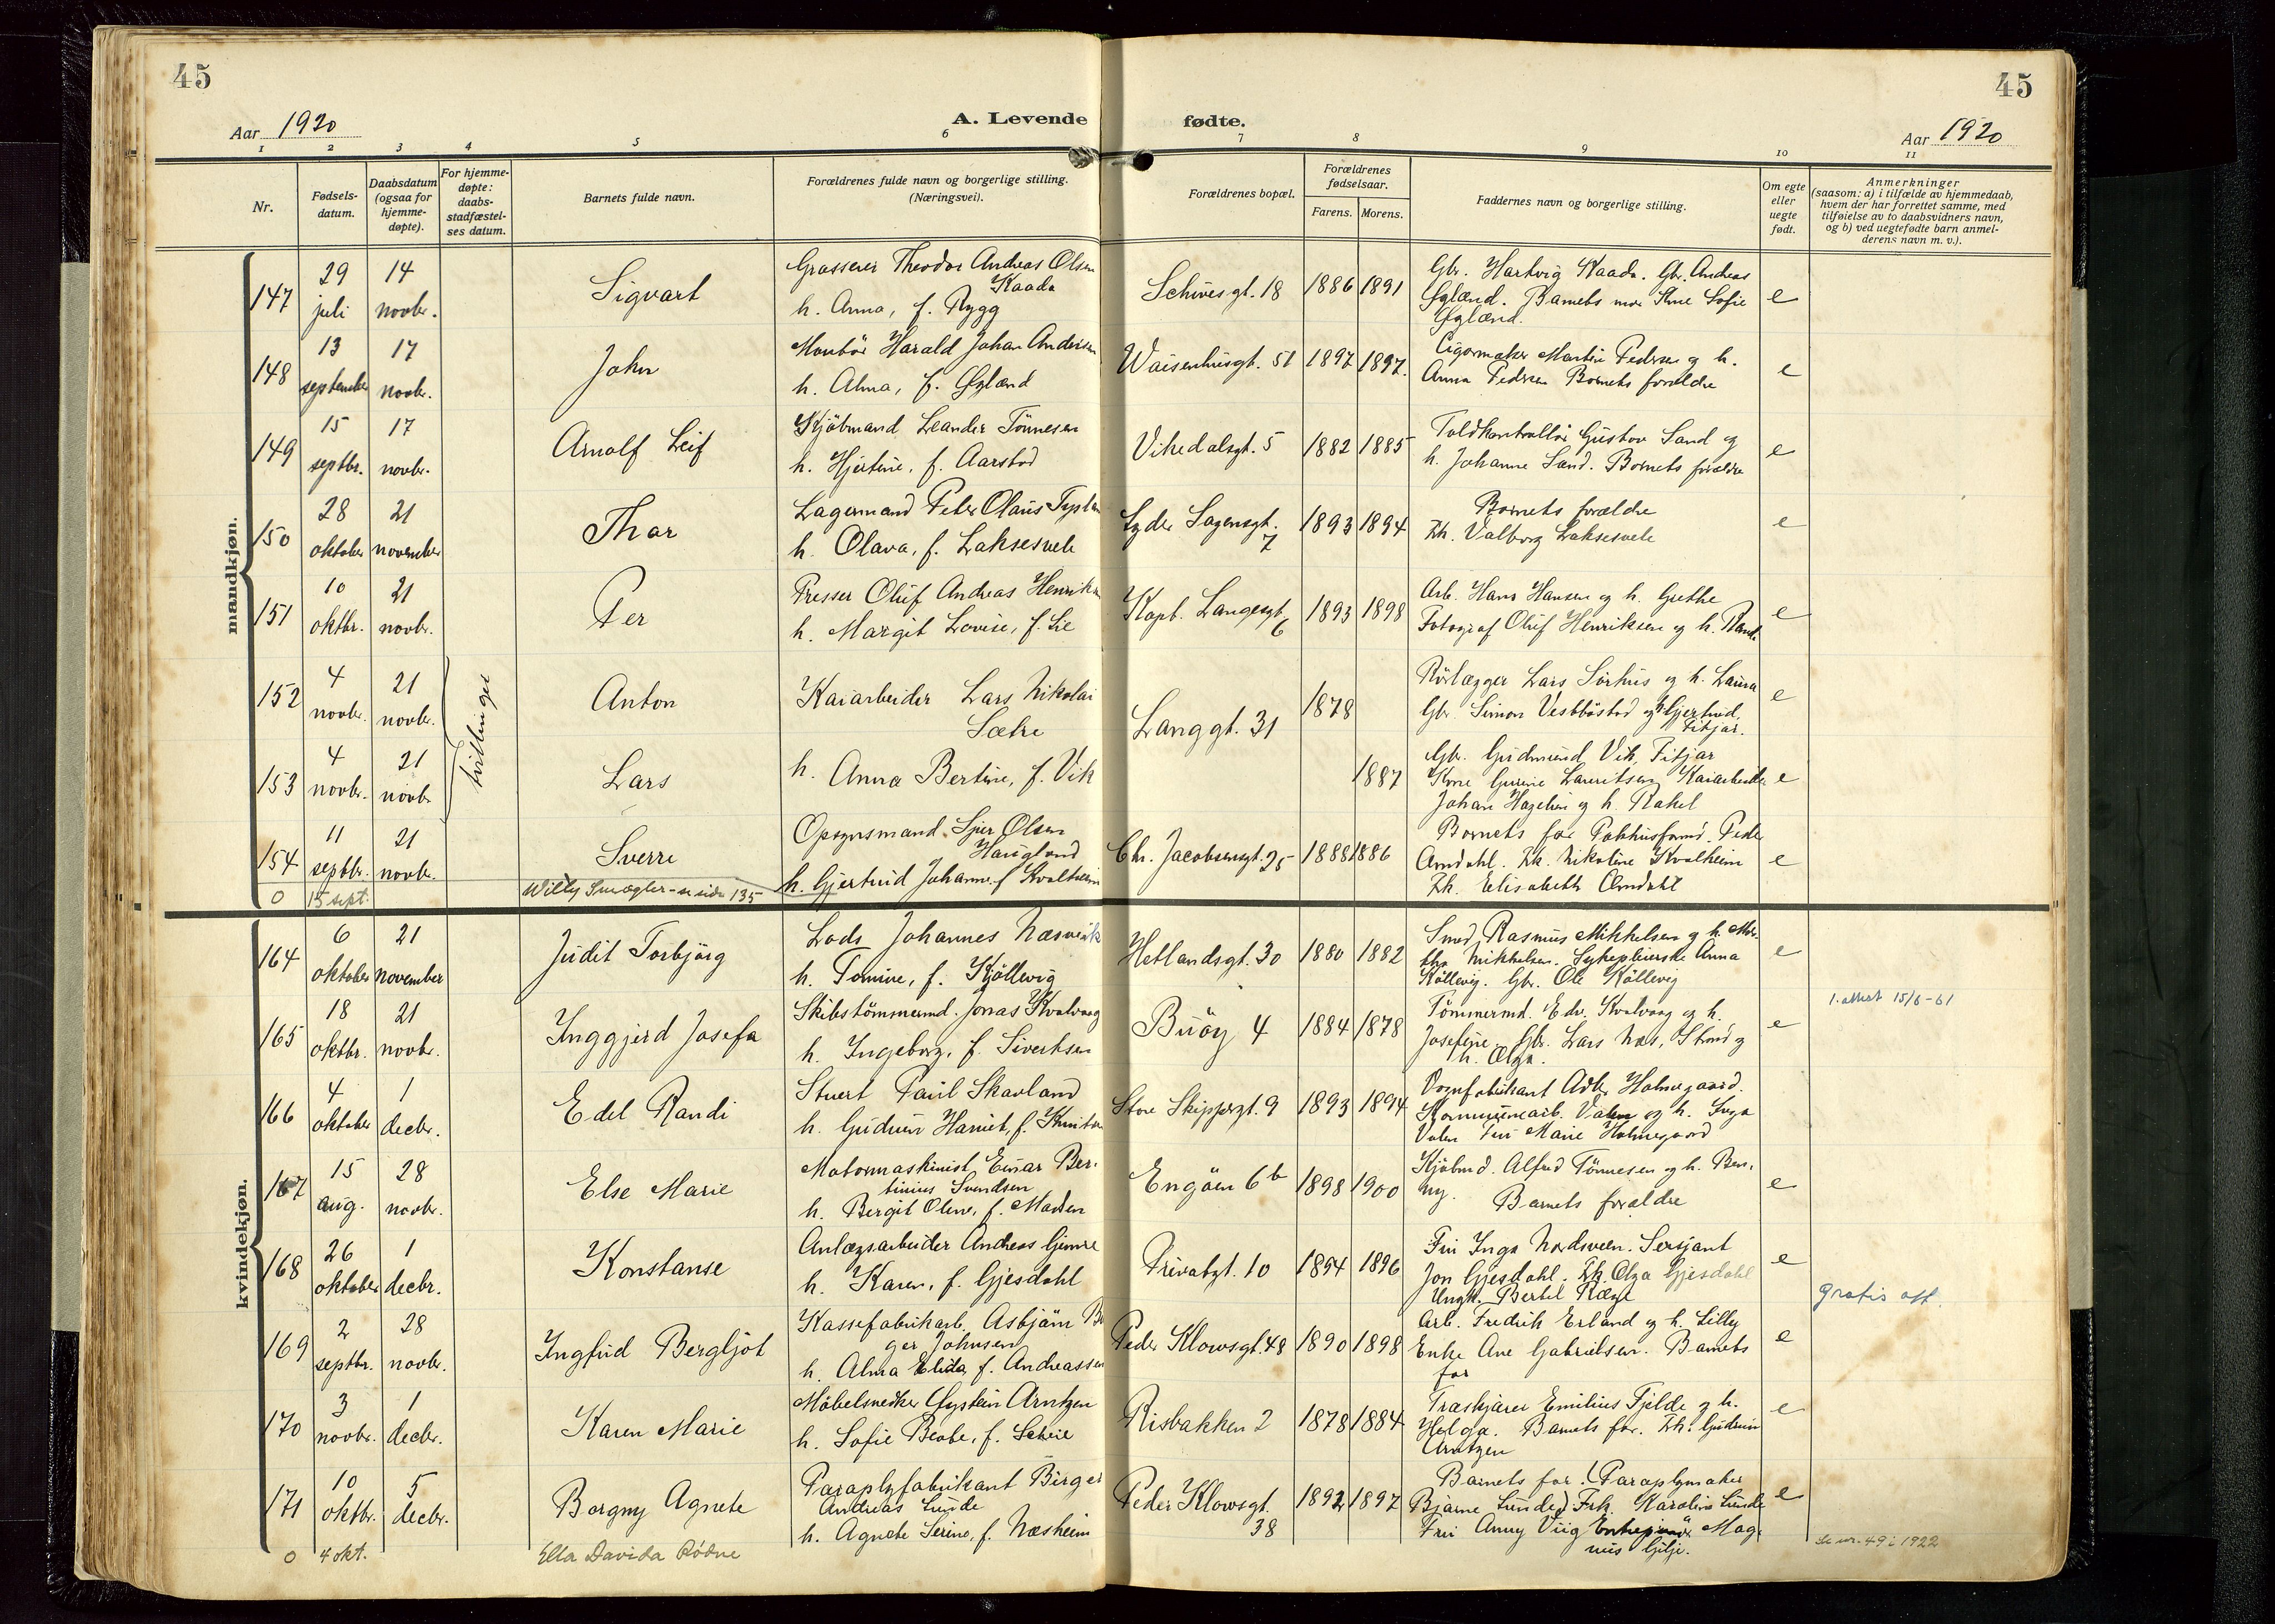 45
45
Aar 1920
A. Levende fødte.
Aar 1920
1 2 3 4 5 6 7 8 9 10 11
Nr.
Fødsels-
datum.
Daabsdatum
(ogsaa for
hjemme-
døpte).
For hjemme-
døpte:
daabs-
stadfæstel-
ses datum.
Barnets fulde navn.
Forældrenes fulde navn og borgerlige stilling.
(Næringsvei).
Forældrenes bopæl.
Forældrenes
fødselsaar.
Farens. Morens.
Faddernes navn og borgerlige stilling.
Om egte
eller
uegte
født.
Anmerkninger
(saasom: a) i tilfælde av hjemmedaab,
hvem der har forrettet samme, med
tilføielse av to daabsvidners navn,
og b) ved uegtefødte barn anmel-
derens navn m. v.).
mandkjøn.
147
29
juli
14
novbr.
Sigvart
Grosserer Theodor Andreas Olsen
Kaada
h. Anna, f. Rygg
Schives gt. 18
1886 1891
Gbr. Hartvig Kaada. Gbr. Andreas
Øglænd. Barnets mor Sofie
Øglænd.
e
148
13
september
17
novbr.
John
Montör Harald Johan Andersen
h. Alma, f. Øglænd
Waisenhusgt. 51
1897 1897.
Cigarmaker Martin Pedersen og h.
Anna Pedersen Barnets forældre
e
149
15
septbr.
17
novbr.
Arnolf Leif
Kjöbmand Leander Tönnesen
h. Hjertine, f. Aarstad
Vikedalsgt. 5
1882 1885
Toldkontrollör Gustav Sand og
h. Johanne Sand. Barnets forældre
e
150
28
oktober
21
november
Thor
Lagermand Peter Olaus
h. Olava, f. Laksesvele
Lyder Sagensgt.
7
1893 1894
Barnets forældre
Frk. Valborg Laksesvele
e
151
10
oktbr.
21
novbr.
Per
Presser Oluf Andreas Henriksen
h. Margit Lovise, f. Lie
Kapt. Langesgt.
6
1893 1898
Arb. Hans Hansen og h. Grethe
Fotograf Oluf Henriksen og h.
e
152
4
novbr.
21
novbr.
tvillinger
Anton
Kaiarbeider Lars Nikolai
Sætre
Langgt. 31
1878
Rörlægger Lars Sörhus og h. Laura
Gbr. Simon Vestböstad og h. Gjertrud,
Fitjar.
e
153
4
novbr.
21
novbr.
Lars
h. Anna Bertine, f. Vik
1887
Gbr. Gudmund Vik, Fitjar
Kone Gurine Lauritsen Kaiarbeider
Johan Hagelien og h. Rakel
e
154
11
septbr.
21
novbr.
Sverre
Opsynsmand Sjur Olsen
Haugland
h. Gjertrud Johanne f. Kvalheim
Chr. Jacobsensgt. 25
1888 1886
Barnets far Pakhusformd. Peder
Amdahl. Frk. Nikoline Kvalheim
Frk. Elisabeth Amdahl
e
0 15 sept. Willy Smægler - se side 135
kvindekjøn.
164
6
oktober
21
november
Judit Torbjörg
Lods Johannes Næsvik
h. Tomine, f. Kjöllevig
Hetlandsgt. 30
1880 1882
Smed Rasmus Mikkelsen og h. Mar-
tha Mikkelsen. Sykepleierske Anna
Köllevig. Gbr. Ole Köllevig
e
1. attest 15/6-61
165
18
oktbr.
21
novbr.
Inggjerd Josefa
Skibstömmermd. Jonas Kvalvaag
h. Ingeborg, f. Sivertsen
Buöy 4
1884 1878
Tömmermd. Edv. Kvalvaag og h.
Josefine. Gbr. Lars Næs, Strand og
h. Olga.
e
166
4
oktober
1
decbr.
Edel Randi
Stuert Paul Skavland
h. Gudrun Harriet, f.
Store Skippergt. 9
1893 1894
Vognfabrikant Adler Holmegaard.
Kommunearb. Valen og h. Inga
Valen Fru Marie Holmegaard
e
167
15
aug.
28
novbr.
Else Marie
Motormaskinist Einar Ber-
tinius Svendsen
h. Bergit Oline, f. Madsen
Engöen 6b
1898 1900
Kjöbmd. Alfred Tönnesen og h. Ben-
ny. Barnets forældre
e
168
26
oktober
1
decbr.
Konstanse
Anlægsarbeider Andreas Gimre
h. Karen, f. Gjesdahl
Privatgt. 10
1894 1896
Fru Inga Nordsveen. Sersjant
Jon Gjesdahl. Frk. Olga Gjesdahl
Ungk. Bertil Ræge
e
gratis att.
169
2
septbr.
28
novbr.
Ingfrid Bergljot
Kassefabrikarb. Asbjörn Bir
ger Johnsen
h. Alma Elida, f. Andreassen
Peder Klowsgt. 48
1890 1898
Arb. Fredrik Erland og h. Lilly
Enke Ane Gabrielsen. Barnets
far
e
170
3
novbr.
1
decbr.
Karen Marie
Möbelsnedker Øystein Arntzen
h. Sofie Beate, f. Scheie
Risbakken 2
1878 1884
Træskjærer Emilius Fjelde og h.
Helga. Barnets far. Frk. Gudrun
Arntzen
e
171
10
oktbr.
5
decbr.
Borgny Agnete
Paraplyfabrikant Birger
Andreas Lunde
h. Agnete Serine, f. Næsheim
Peder Klowsgt.
38
1892 1897
Barnets far. (Paraplymaker
Bjarne Lunde) Frk. Karoline Lunde
Fru Anny Viig Mag-
nus Gilje.
e
0 4 okt. Ella Davida Rödne
Se nr. 49 i 1922